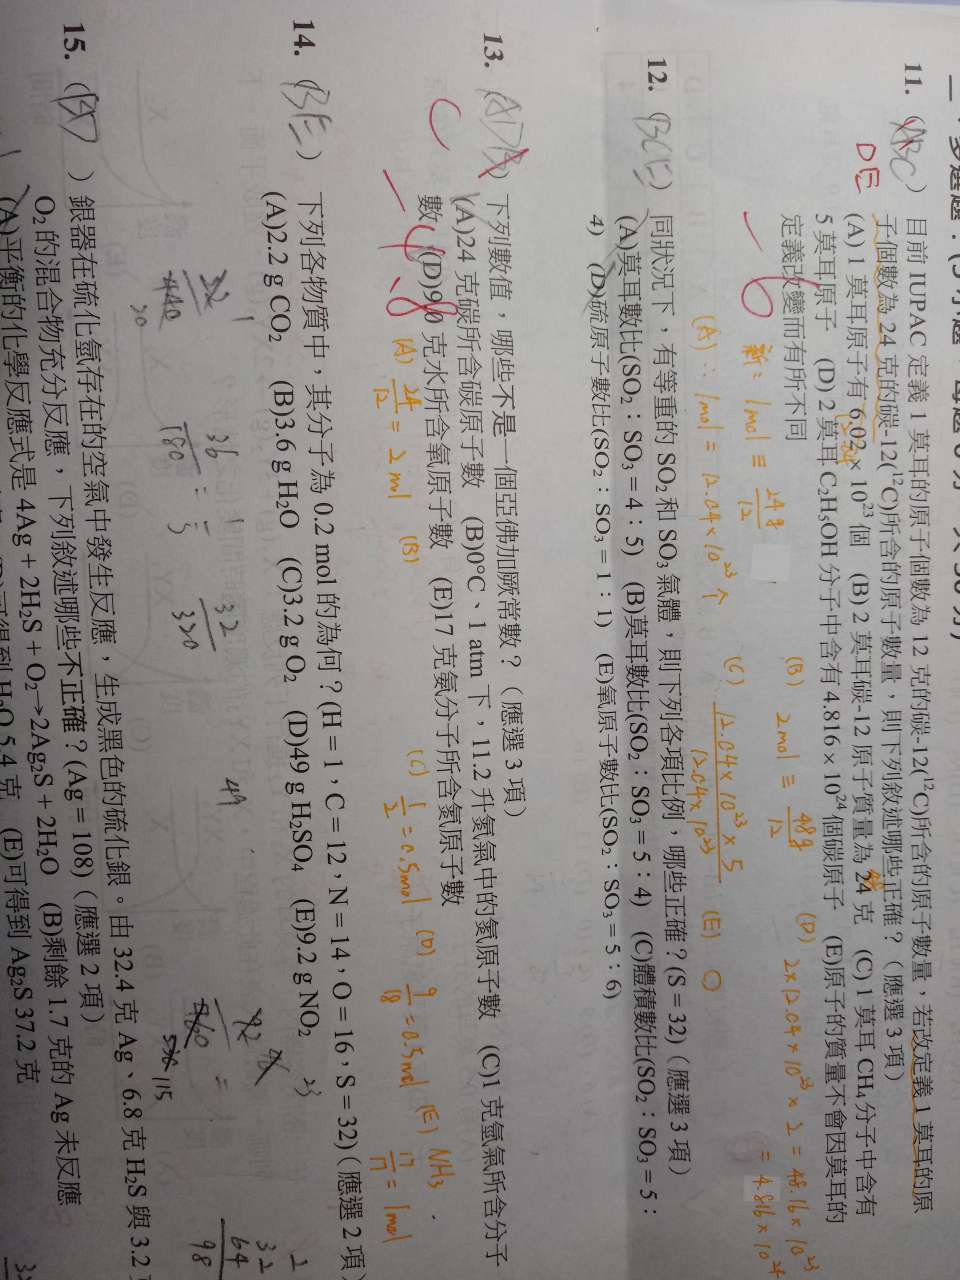 二、多選題：(5 小題，每題 6 分，共 30 分)
11. (ABC) 目前 IUPAC 定義 1 莫耳的原子個數為 12 克的碳-12(¹²C)所含的原子數量，若改定義 1 莫耳的原
DE 子個數為 24 克的碳-12(¹²C)所含的原子數量，則下列敘述哪些正確？（應選 3 項）
(A) 1 莫耳原子有 6.02 × 10²³ 個 (B) 2 莫耳碳-12 原子質量為 24 克 (C) 1 莫耳 CH₄ 分子中含有
5 莫耳原子 (D) 2 莫耳 C₂H₅OH 分子中含有 4.816 × 10²⁴ 個碳原子 (E)原子的質量不會因莫耳的
定義改變而有所不同
(B) 2mol ≡ 48g/12 (D) 2×12.04×10²³×2 = 48.16×10²³
= 4.816×10²⁴
-6 新：1mol ≡ 24g/12 (C) 12.04×10²³×5/12.04×10²³ (E) ○
(A)：1mol = 12.04×10²³个
12. (BCE) 同狀況下，有等重的 SO₂ 和 SO₃ 氣體，則下列各項比例，哪些正確？(S = 32)（應選 3 項）
(A)莫耳數比(SO₂：SO₃ = 4：5) (B)莫耳數比(SO₂：SO₃ = 5：4) (C)體積數比(SO₂：SO₃ = 5：
4) (D)硫原子數比(SO₂：SO₃ = 1：1) (E)氧原子數比(SO₂：SO₃ = 5：6)
13. 下列數值，哪些不是一個亞佛加厥常數？（應選 3 項）
C (A)24 克碳所含碳原子數 (B)0°C、1 atm 下，11.2 升氮氣中的氮原子數 (C)1 克氫氣所含分子
數 (D)9.0 克水所含氧原子數 (E)17 克氨分子所含氮原子數
-4.8 (A) 24/12 = 2 mol (B) (C) 1/2 = 0.5mol (D) 9/18 = 0.5mol (E) NH₃ 17/17 = 1mol
14. (BE) 下列各物質中，其分子為 0.2 mol 的為何？(H = 1，C = 12，N = 14，O = 16，S = 32)（應選 2 項）
(A)2.2 g CO₂ (B)3.6 g H₂O (C)3.2 g O₂ (D)49 g H₂SO₄ (E)9.2 g NO₂
36/180 = 5 32/320 49
2
32
64
98
115
15. 銀器在硫化氫存在的空氣中發生反應，生成黑色的硫化銀。由 32.4 克 Ag、6.8 克 H₂S 與 3.2
O₂ 的混合物充分反應，下列敘述哪些不正確？(Ag = 108)（應選 2 項）
(A)平衡的化學反應式是 4Ag + 2H₂S + O₂→2Ag₂S + 2H₂O (B)剩餘 1.7 克的 Ag 未反應
可得到 H₂O 5.4 克 (E)可得到 Ag₂S 37.2 克